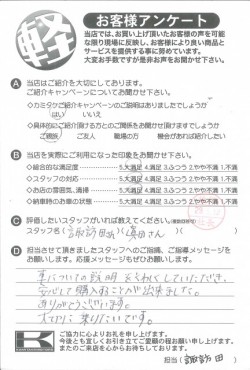 軽
お客様アンケート
当店では、お買い上げ頂いたお客様の声を可能
な限り現場に反映し、お客様により良い商品と
サービスを提供する事に努めています。
大変お手数ですが是非お声をお聞かせ下さい。
A 当店はご紹介を大切にしております。
ご紹介キャンペーンについてお聞かせ下さい。
◇カミタケご紹介キャンペーンのご説明はありましたでしょうか
はい いいえ
◇具体的にご紹介頂ける方とのご関係をお聞かせ頂けますでしょうか
ご親族 ご友人 職場の方 機会があればご紹介
B 当店を実際にご利用になった印象をお聞かせ下さい。
◇総合的な満足度 5.大満足 4.満足 3.ふつう 2.やや不満 1.不満
◇スタッフの対応 5.大満足 4.満足 3.ふつう 2.やや不満 1.不満
◇お店の雰囲気、清掃 5.大満足 4.満足 3.ふつう 2.やや不満 1.不満
◇納車時のお車の状態 5.大満足 4.満足 3.ふつう 2.やや不満 1.不満
C 評価したいスタッフがいれば教えてください。(複数回答可)
スタッフ名(諏訪田さん)(さん)
D 担当させて頂きましたスタッフへのご指摘、ご指導メッセージを
お願いします。応援メッセージもぜひお願いします。
車についての説明
安心して購入することが出来ました。
ありがとうございます。
大切に乗りたいです。
K
ご協力に心よりお礼を申し上げます。
今後とも宜しくお引き立てご愛顧の程お願い申し上げます。
またのご来店を心からお待ちしております。
担当(諏訪田)